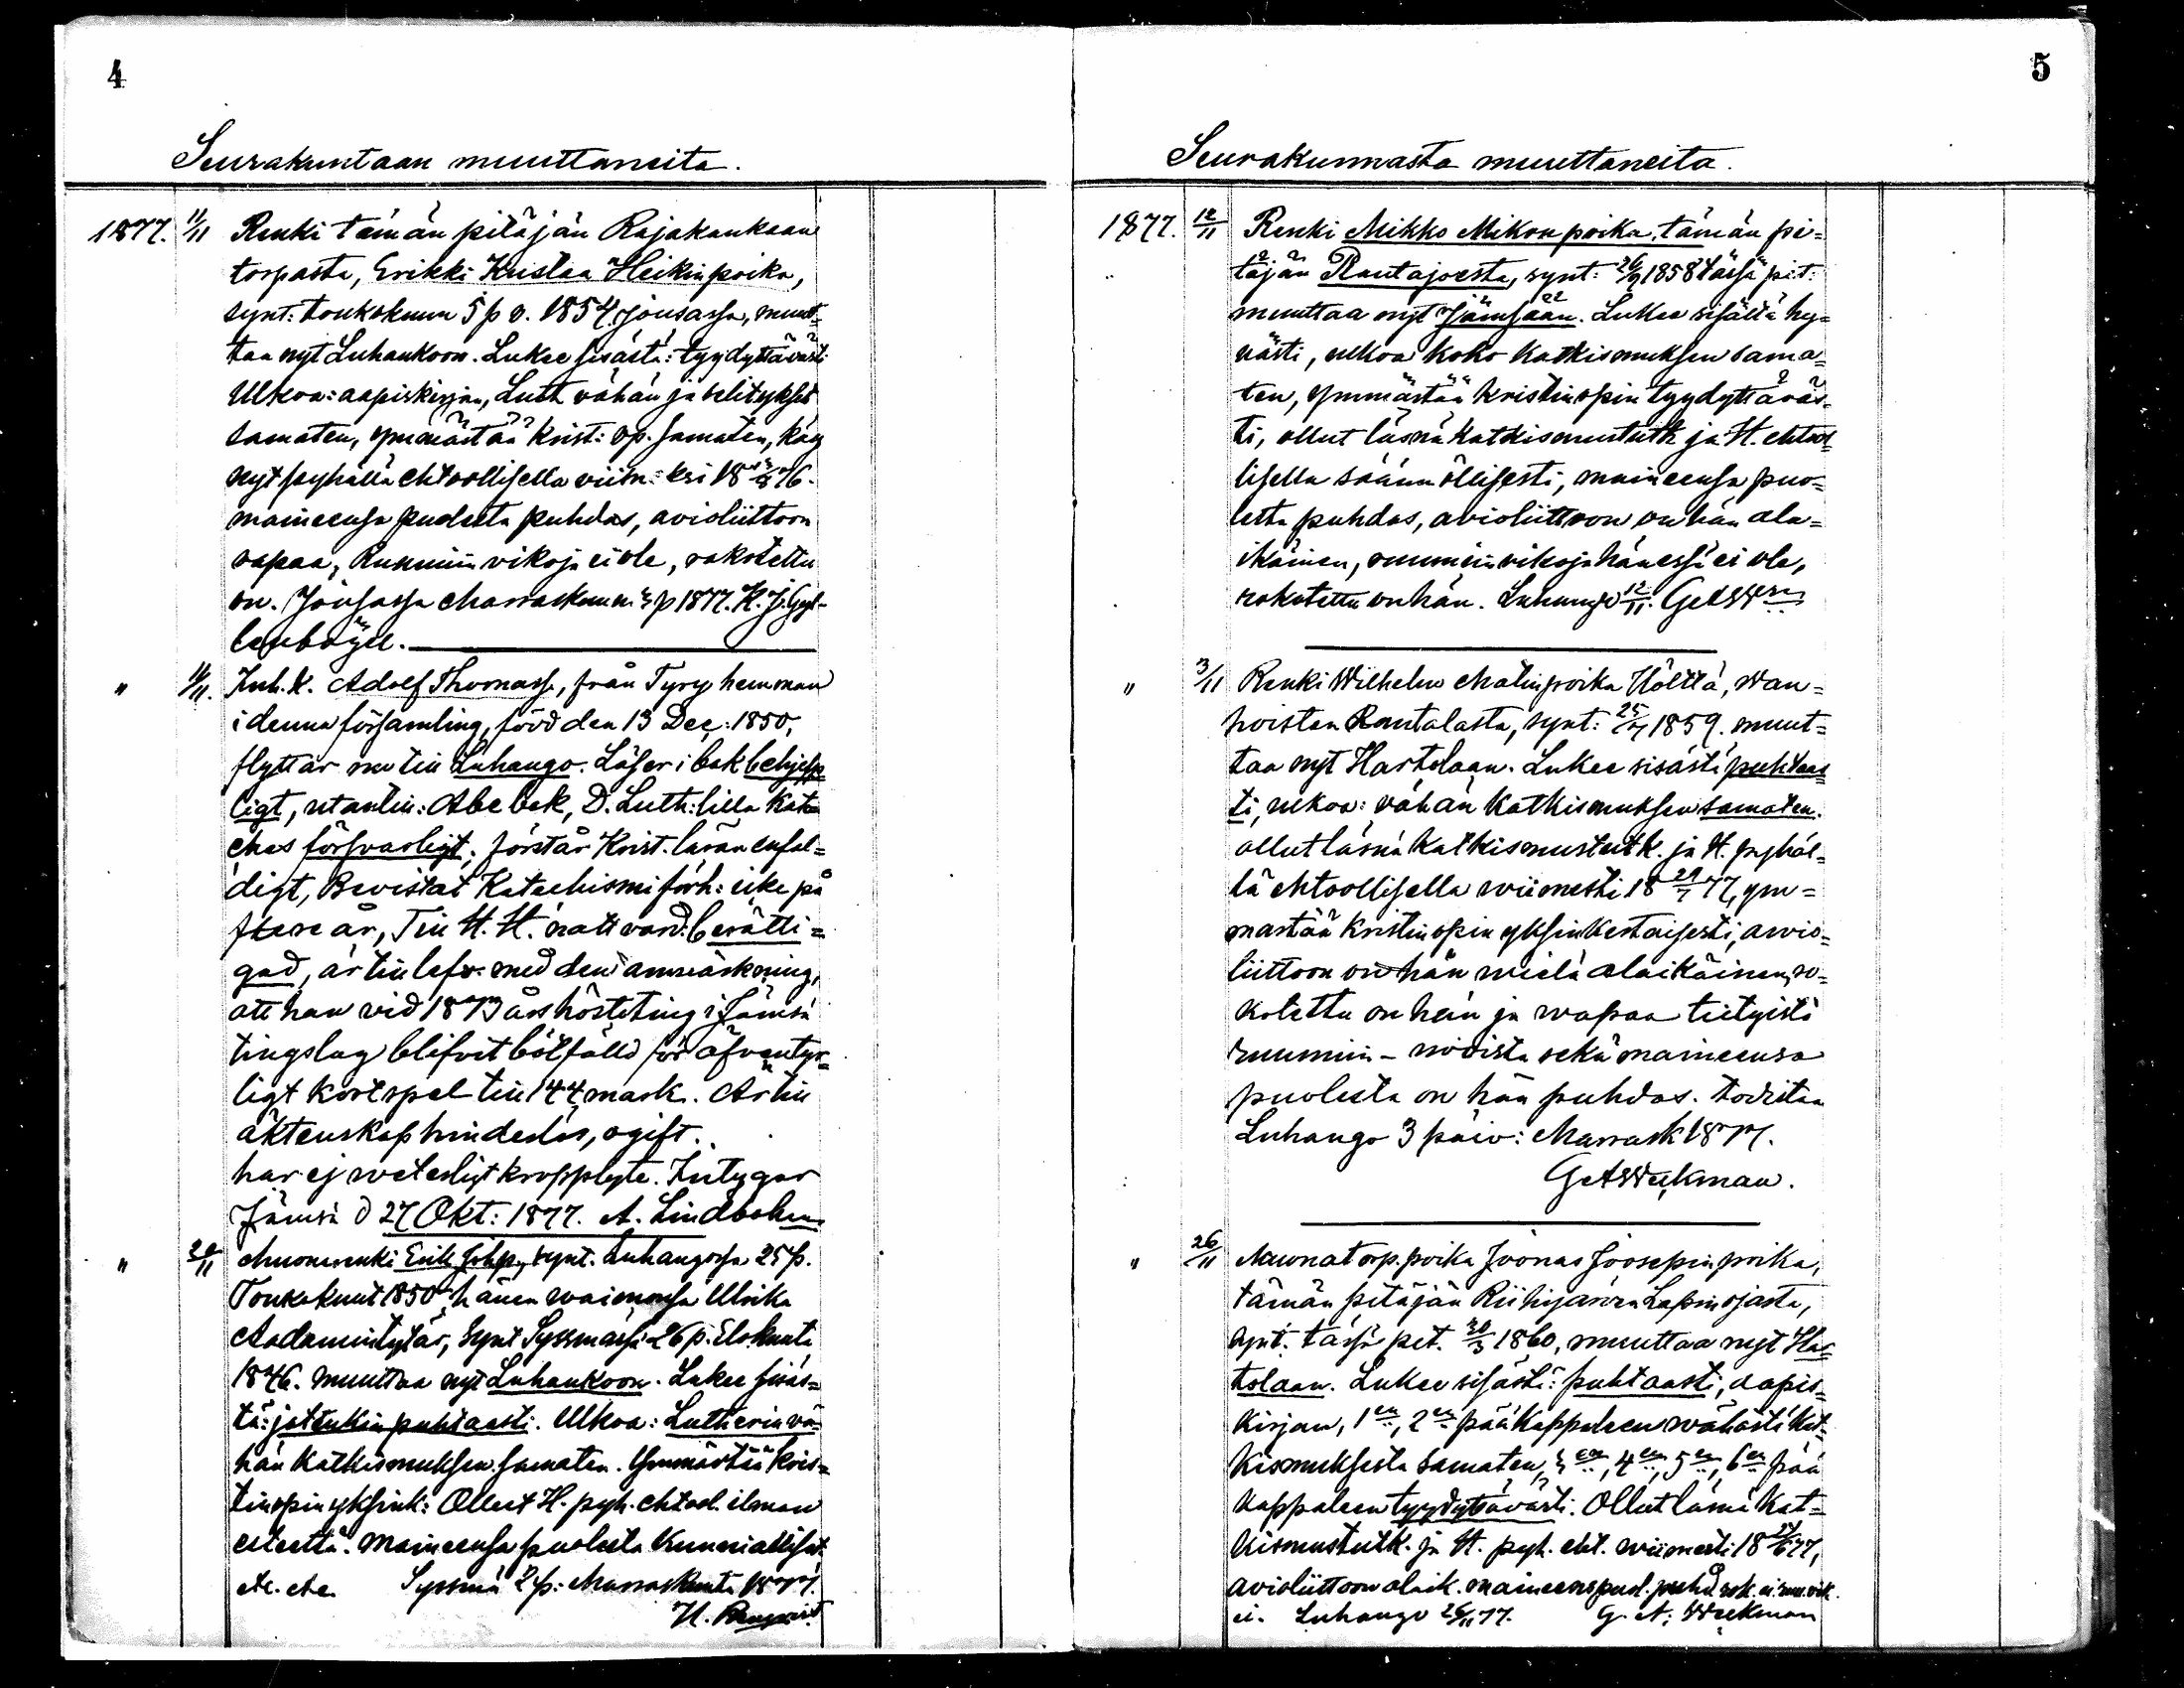 4
Seurakuntaan muuttaneita.
1877. 11/11 Renki tämän pitäjän Rajakankaan
torpasta, Erikki Kustaa Heikinpoika,
synt: toukokuun 5 p v. 1854 Joutsassa, muut-
taa nyt Luhankoon. Lukee sisästä: tyydyttävästi
Ulkoa: aapiskirjan, Luth vähän ja selitykset
samaten, ymmärtää Krist: op. samaten, käy
nyt pyhällä ehtoollisella viim: kri
maineensa puolesta puhdas, avioliittoon
vapaa, Ruumiin vikoja ei ole, rokotettu
on. Joutsassa Marraskuun 3 p 1877. K. J. Gyl-
lenbögel.
" 11/11. Inh. K. Adolf Thomass, från Tyry hemman
i denna församling, född den 13 Dec: 1850,
flyttar nu till Luhango. Läser i bok behjelp
ligt, utantill: Abc bok, D. Luth: lilla Kate
ches försvarligt; förstår Krist. läran enfal=
digt, Bevistat Katechismi förh: icke på
flere år, Till H. H. nattvard berätti=
gad, är till lefv: med den anmärkning,
att han vid 1873 års hösteting i Jämsä
tingslag blifvit bötfälld för äfventyr=
ligt kortspel till 144 mark. Är till
äktenskap hinderlös, ogift.
har ej veterligt kroppslyte. Intygar
Jämsä d 27 Okt: 1877. A. Lindbohm
" /11 Muonarenki Erik Joh p., synt. Luhangossa 25 p.
Toukokuut 1850, hänen waimonsa Ulrika
Aadamintytär, synt Syssmässä 26 p. Elokuuta
1846. muuttaa nyt Luhankoon. Lukee sisäs=
tä: jotenkin puhtaasti. Ulkoa: Lutherin vä-
hän Katkismuksen samaten. Ymmärtää kris=
tinopin yksink: Ollut H. pyh. ehtool. ilman
esteettä. Maineensa puolesta kunnialliset.
etc. etc. Syssmä 2 p: Marraskuuta 1877.
5
Seurakunnasta muuttaneita.
1877. 12/11 Renki Mikko Mikonpoika, tämän pi=
täjän Rautajoesta, synt: 1858 tässä pit:
muuttaa nyt Jämsään. Lukee sisältä hy=
västi, ulkoa koko Katkismuksen sama=
ten, ymmärtää kristinopin tyydyttäväs=
ti, ollut läsnä Katkismustutk ja H. ehtool
lisella säännöllisesti, maineensa puo=
lesta puhdas, avioliittoon on hän ala=
ikäinen, ruumiin vikoja hänessä ei ole,
rokotettu on hän. Luhango 12/11.
" 3/11 Renki Wilhelm Matinpoika Hölttä, Wan=
hoisten Rantalasta, synt: 1859. muut=
taa nyt Hartolaan. Lukee sisästi puhtaas
ti, ulkoa: vähän Katkismuksen samaten.
ollut läsnä Katkismustutk. ja H. pyhäl=
lä ehtoollisella wiimesti 18 29/7 77, ym=
märtää Kristinopin yksinkertaisesti, awio=
liittoon on hän wielä alaikäinen, ro=
kotettu on hän ja wapaa tietyistä
ruumiin- wioista sekä maineensa
puolesta on hän puhdas. todistaa
Luhango 3 päiv: Marrask 1877.
G A Weckman.
" 26/11 Muonatorp. poika Joonas Joosepinpoika,
tämän pitäjän Riihijärven Lapinojasta,
synt: tässä pit. 30/3 1860, muuttaa nyt Har
tolaan. Lukee sisästi: puhtaasti, aapis=
kirjan, 1en, 2en pääkappaleen wähästä kat=
kismuksesta samaten, 3en, 4en, 5en, 6en pää
kappaleen tyydyttävästi. Ollut läsnä Kat=
kismustutk. ja H. pyh. eht. wiimesti 18 77,
avioliittoon alaik. maineens puol. puhd. rok.
ei. Luhango 26/11 77. G. A. Weckman